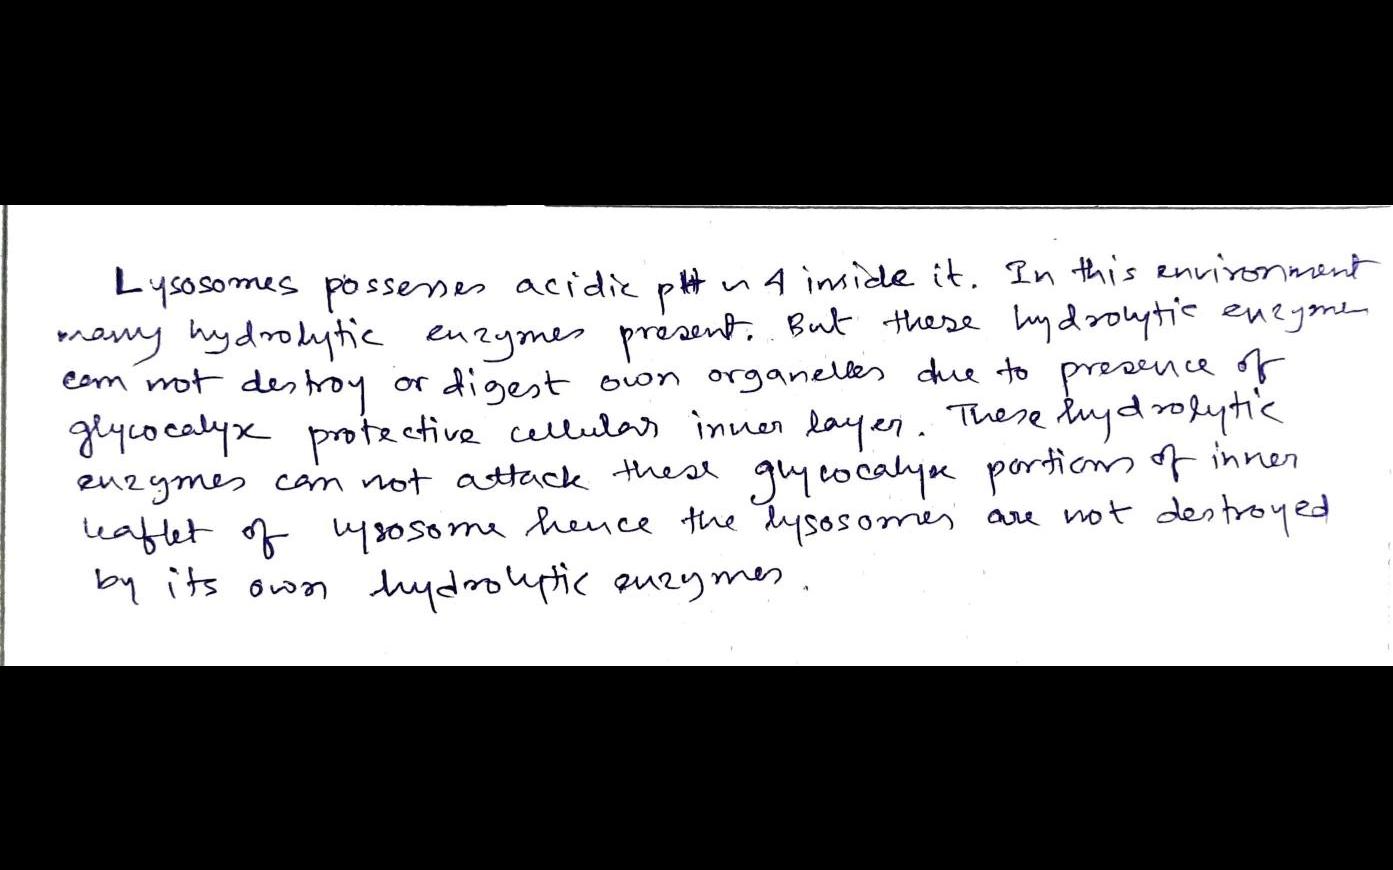 Lysosomes possesses acidic pH ~ 4 inside it. In this environment
many hydrolytic enzymes present. But these hydrolytic enzymes
can not destroy or digest own organelles due to presence of
glycocalyx protective cellular inner layer. These hydrolytic
enzymes can not attack these glycocalyx portions of inner
leaflet of lysosome hence the lysosomes are not destroyed
by its own hydrolytic enzymes.